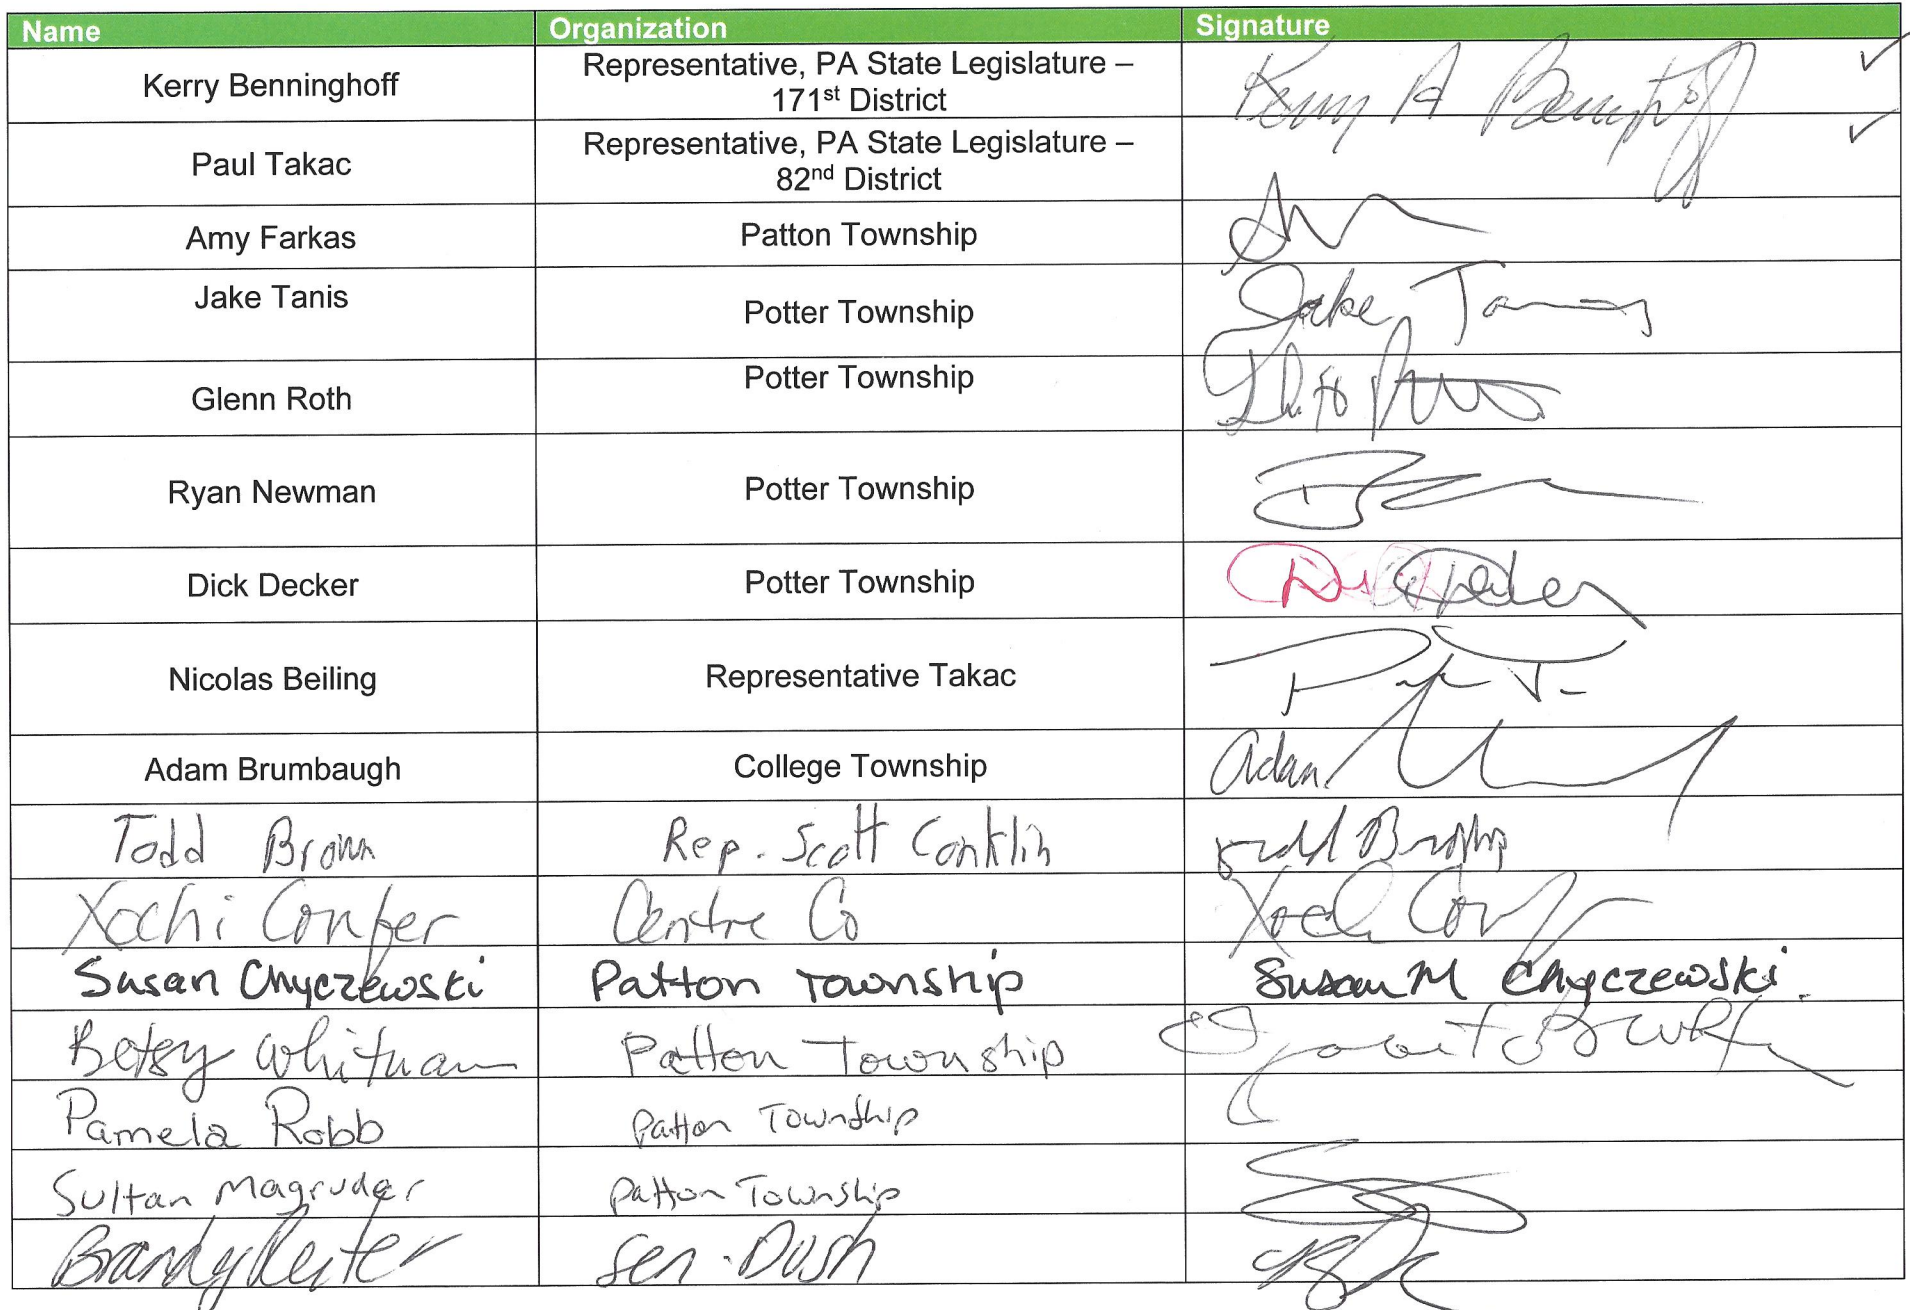 Name Organization Signature
Kerry Benninghoff Representative, PA State Legislature –
171st District Kerry A Benninghoff
Paul Takac Representative, PA State Legislature –
82nd District
Amy Farkas Patton Township
Jake Tanis Potter Township Jake Tanis
Glenn Roth Potter Township
Ryan Newman Potter Township
Dick Decker Potter Township Decker
Nicolas Beiling Representative Takac
Adam Brumbaugh College Township Adam
Todd Brown Rep. Scott Conklin
Xochi Confer Centre Co Xochi Confer
Susan Chyczewski Patton Township Susan M Chyczewski.
Betsy Whitman Patton Township
Pamela Robb Patton Township
Sultan Magruder Patton Township
Brandy Reiter Sen. Dush